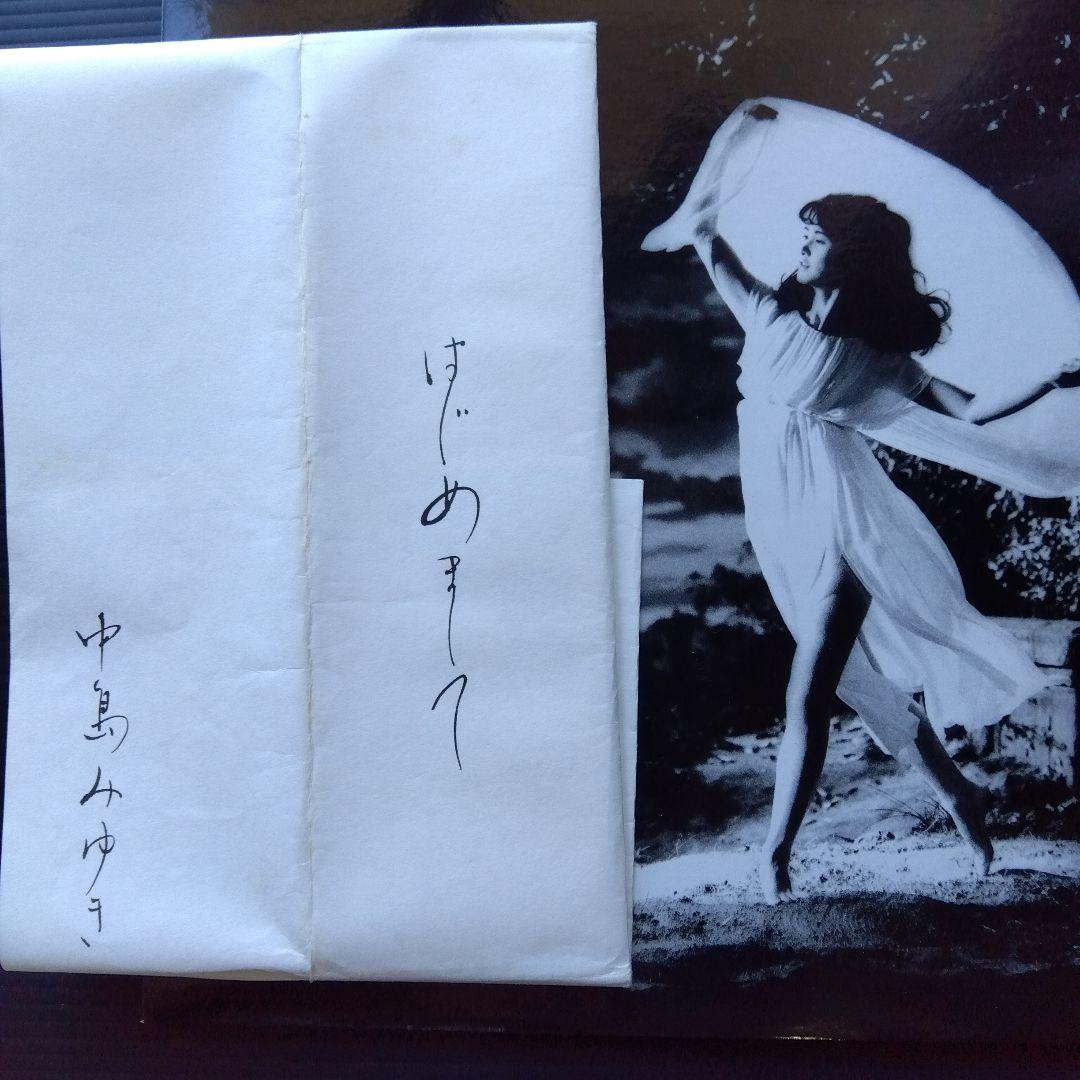 はじめまして
中島みゆき